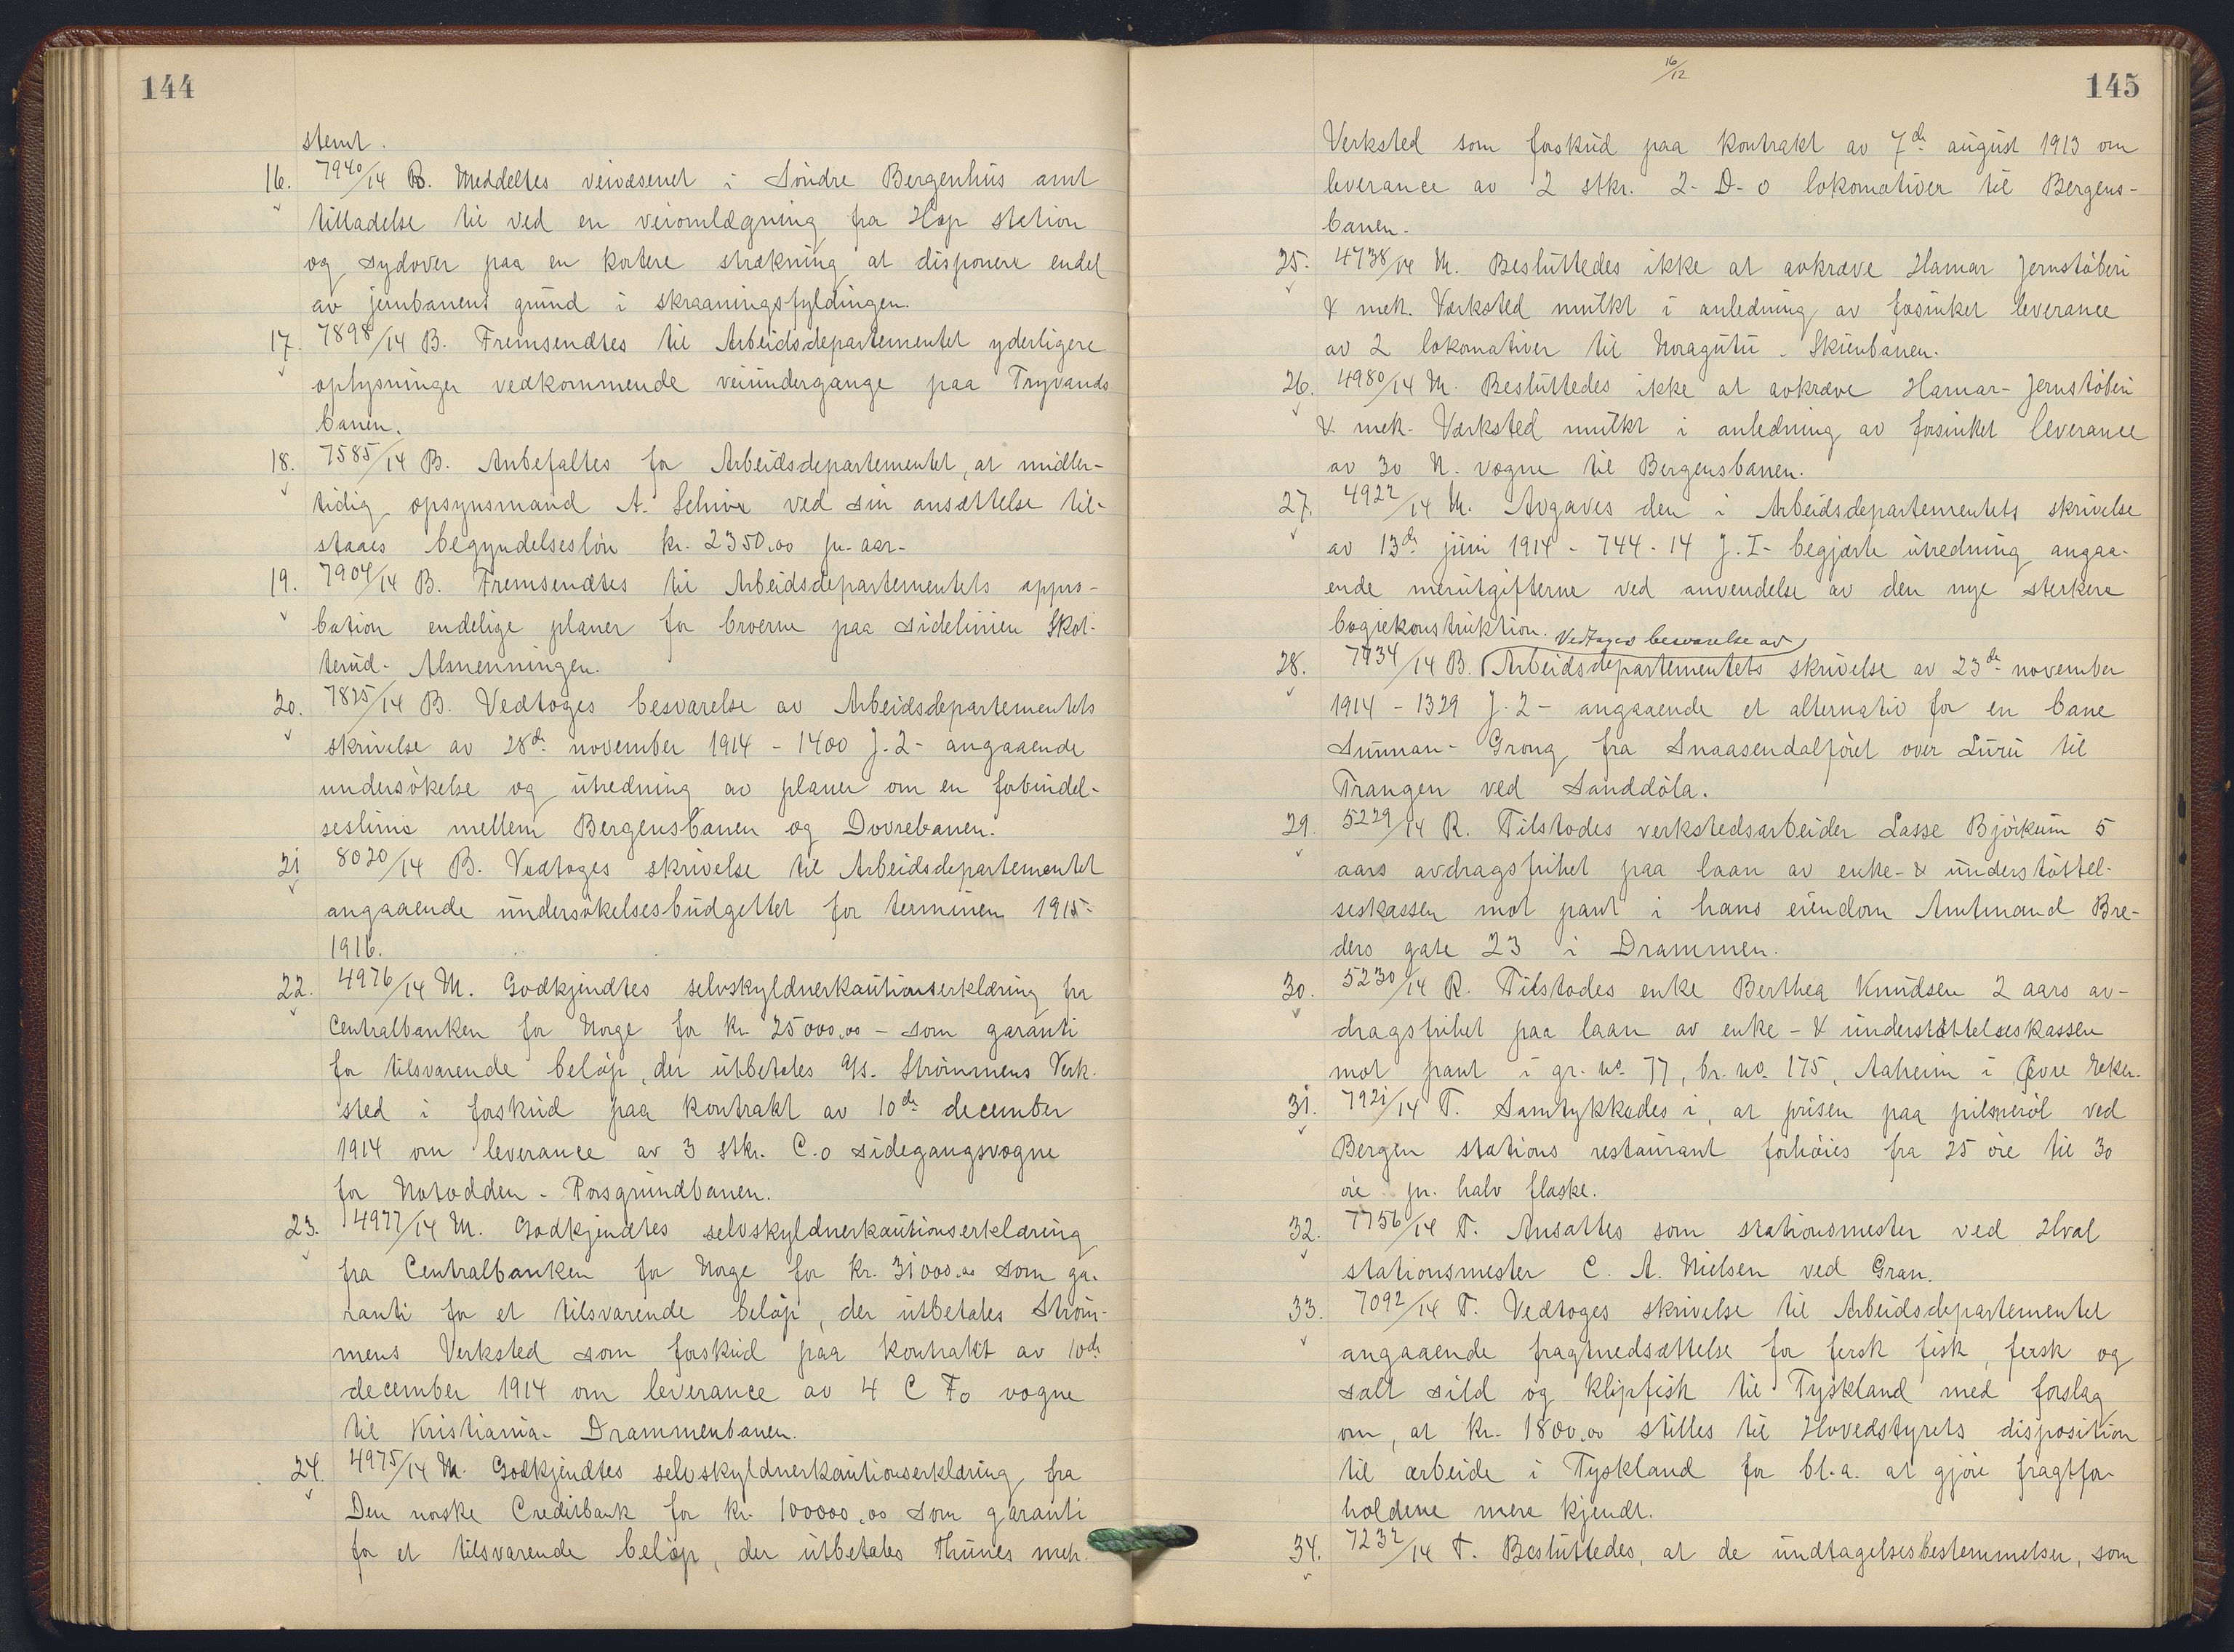 144
stemt.
16. 7940/14 B. Meddeltes veivæsenet i Søndre Bergenhus amt
tilladelse til ved en veiomlægning fra Hop station
og sydover paa en kortere strækning at disponere endel
av jernbanens grund i skraaningsfyldingen.
17. 7898/14 B. Fremsendtes til Arbeidsdepartementet yderligere
oplysninger vedkommende veiundergange paa Tryvands
banen.
18. 7585/14 B. Anbefaltes for Arbeidsdepartementet, at midler-
tidig opsynsmand A. Schive ved sin ansættelse til-
staaes begyndelsesløn kr. 2350.00 pr. aar.
19. 7904/14 B. Fremsendtes til Arbeidsdepartementets appro-
bation endelige planer for broerne paa sidelinien Skot-
terud - Alsnenningen.
20. 7825/14 B. Vedtoges besvarelse av Arbeidsdepartementets
skrivelse av 28de november 1914 - 1400 J. 2 - angaaende
undersøkelse og utredning av planer om en forbindel-
seslinie mellem Bergensbanen og Dovrebanen.
21 8020/14 B. Vedtoges skrivelse til Arbeidsdepartementet
angaaende undersøkelsesbudgettet for terminen 1915-
1916.
22. 4976/14 M. Godkjendtes selvskyldnerkautionserklæring fra
Centralbanken for Norge for kr. 25000.00 - som garanti
for tilsvarende beløp, der utbetales A/S. Strømmens Verk-
sted i forskud paa kontrakt av 10de december
1914 om leverance av 3 stkr. C.o sidegangsvogne
for Notodden - Porsgrundbanen.
23. 4977/14 M. Godkjendtes selvskyldnerkautionserklæring
fra Centralbanken for Norge for kr. 31000.00 som ga-
ranti for et tilsvarende beløp, der utbetales Strøm-
mens Verksted som forskud paa kontrakt av 10de
december 1914 om leverance av 4 C Fo vogne
til Kristiania - Drammenbanen.
24. 4975/14 M. Godkjendtes selvskyldnerkautionserklæring fra
Den norske Creditbank for kr. 100000.00 som garanti
for et tilsvarende beløp, der utbetales Thunes mek.
16/12
145
Verksted som forskud paa kontrakt av 7de august 1913 om
leverance av 2 stkr. 2-D-o lokomotiver til Bergens-
banen.
25. 4738/14 M. Besluttedes ikke at avkræve Hamar Jernstøberi
& mek. Værksted mulkt i anledning av forsinket leverance
av 2 lokomotiver til Noragutu - Skienbanen.
26. 4980/14 M. Besluttedes ikke at avkræve Hamar-Jernstøberi
& mek. Værksted mulkt i anledning av forsinket leverance
av 30 N. vogne til Bergensbanen.
27. 4922/14 M. Avgaves den i Arbeidsdepartementets skrivelse
av 13de juni 1914 - 744 - 14 J. I - begjærte utredning angaa-
ende merutgifterne ved anvendelse av den nye sterkere
bogiekonstruktion.
Vedtoges besvarelse av
28. 7934/14 B. Arbeidsdepartementets skrivelse av 23de november
1914 - 1329 J. 2 - angaaende et alternativ for en bane
Sunnan - Grong fra Snaasendalføret over Luru til
Trangen ved Sanddøla.
29. 5229/14 R. Tilstodes verkstedsarbeider Lasse Bjørkum 5
aars avdragsfrihet paa laan av enke- & understøttel-
seskassen mot pant i hans eiendom Amtmand Bre-
ders gate 23 i Drammen.
30. 5230/14 R. Tilstodes enke Berthea Knudsen 2 aars av-
dragsfrihet paa laan av enke- & understøttelseskassen
mot pant i gr. no. 77, br. no. 175, Aaheim i Øvre Eker.
31. 7921/14 T. Samtykkedes i, at prisen paa pilsnerøl ved
Bergen stations restaurant forhøies fra 25 øre til 30
øre pr. halv flaske.
32. 7756/14 T. Ansattes som stationsmester ved Hval
stationsmester C. A. Nielsen ved Gran.
33. 7092/14 T. Vedtoges skrivelse til Arbeidsdepartementet
angaaende fragtnedsættelse for fersk fisk, fersk og
salt sild og klipfisk til Tyskland med forslag
om, at kr. 1800.00 stilles til Hovedstyrets disposition
til arbeide i Tyskland for bl.a. at gjøre fragtfor-
holdene mere kjendt.
34. 7232/14 T. Besluttedes, at de undtagelsesbestemmelser, som